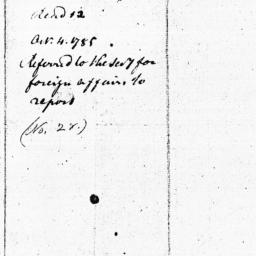 Read 12
Oct. 4. 1785
Referred to the secy for
foreign affairs to
report
(No. 2 r.)